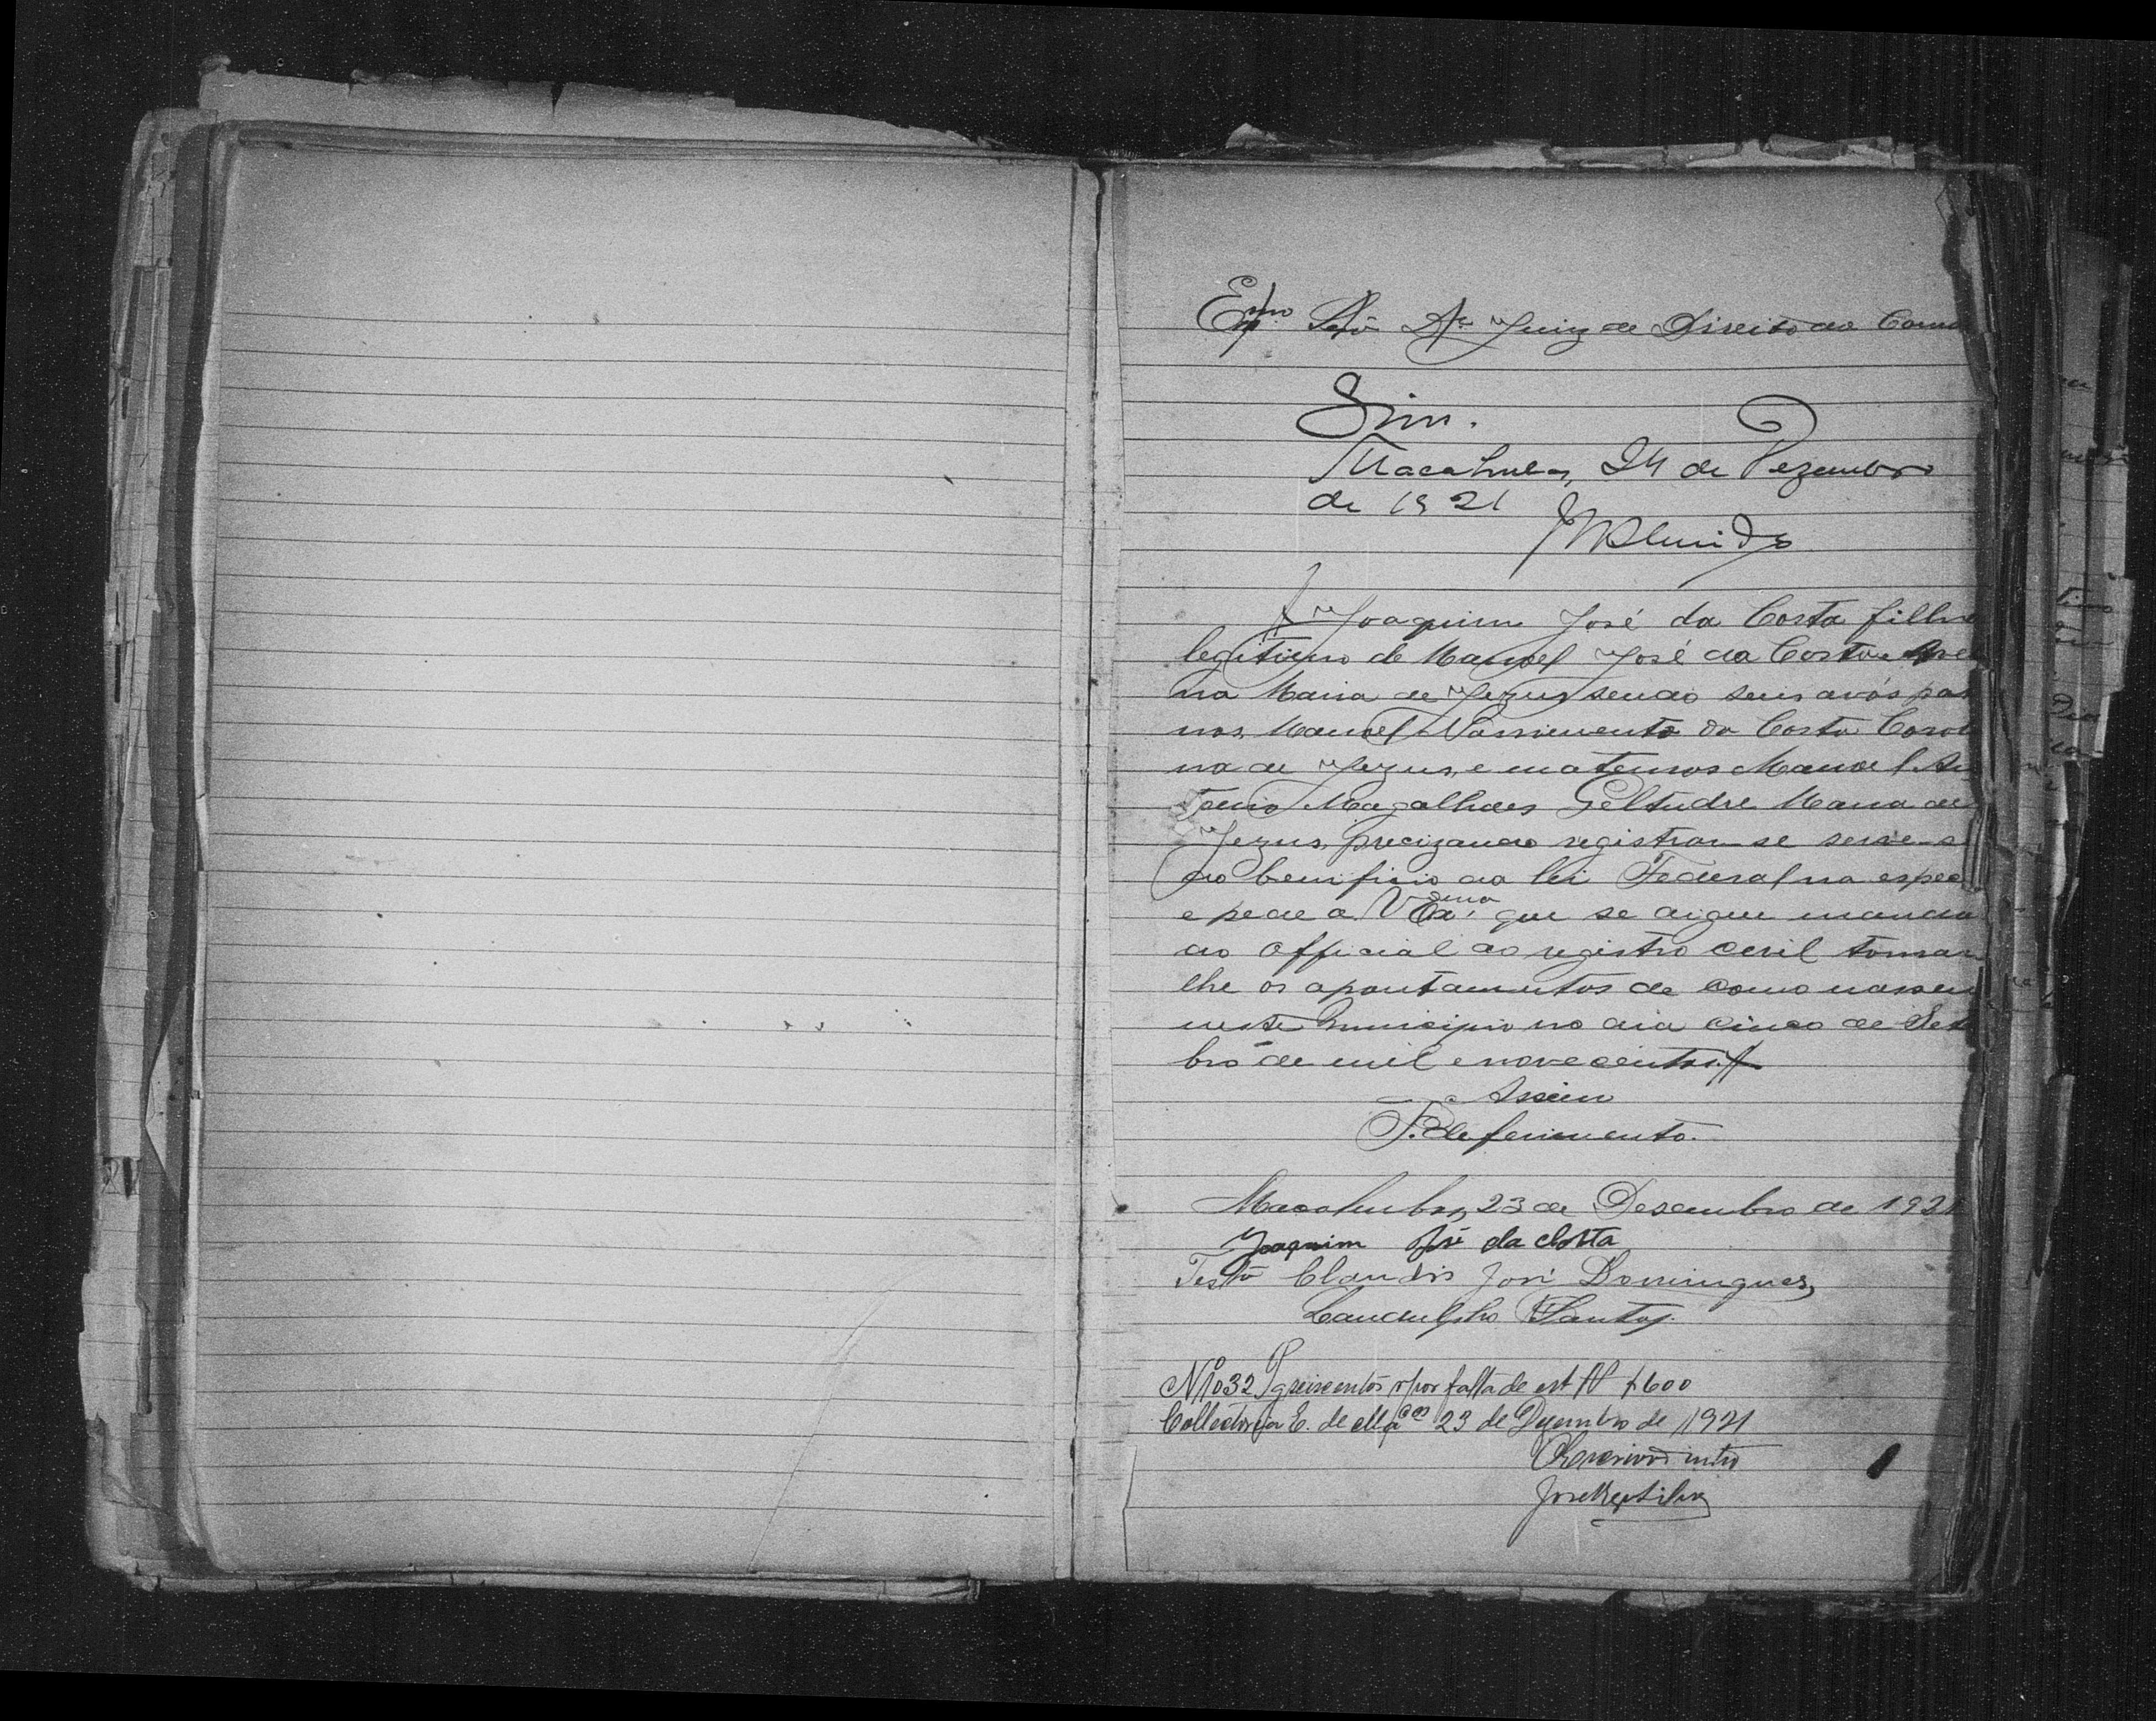 Exmo Senr Dr Juiz de Direito da Coma
Sim.
Macahubas, 24 de Dezembro
de 1921
Joaquim José da Costa filho
legitimo de Manoel José da Costa e
na Maria de Jezus sendo seus avós pater
nos, Manoel Nassimento da Costa Caroli
na de Jezus, e maternos Manoel An
tonio Magalhães Geltudre Maria de
Jezus, precizando registrar-se serve-s
do beneficio da lei Federal na espec
e pede a V Exa. que se digne manda
ao official do registro cevil tomar
lhe os apontamentos de como nasseu
neste municipio no dia cinco de Set
bro de mil e novecentos.
Assim
P. deferimento.
Macahubas, 23 de Desembro de 1921
Joaquim José da Costa
Testa Claudio José Domingues,
Landulpho Santos
No 1032 Pg seiscentos rs por falta de est $600
Collectoria E. de Macas 23 de Dezembro de 1921
O Escrivão intro
José Silva